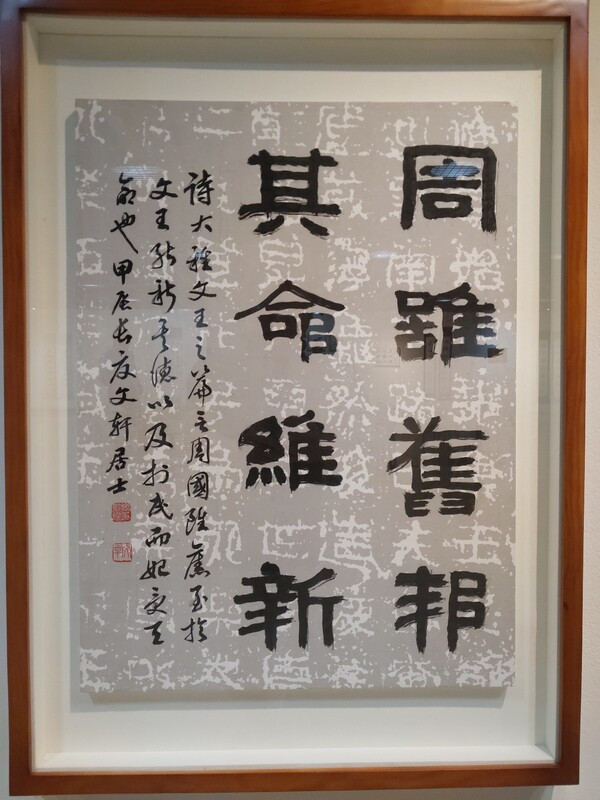 周雖舊邦
其命維新
詩大雅文王之篇言周國雖舊至於
文王能新其德以及於民而始受天
命也甲辰長夏文軒居士